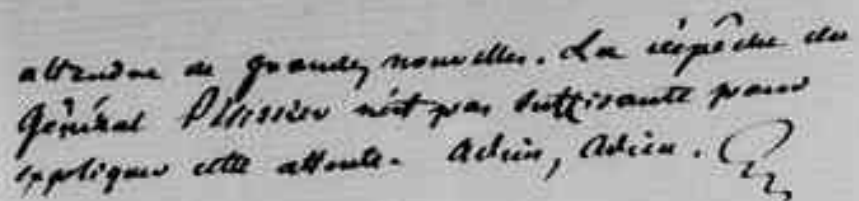 attendre de grandes nouvelles. La dépêche du
Général Pélissier n'est pas suffisante pour
expliquer cette attente. Adieu, Adieu.